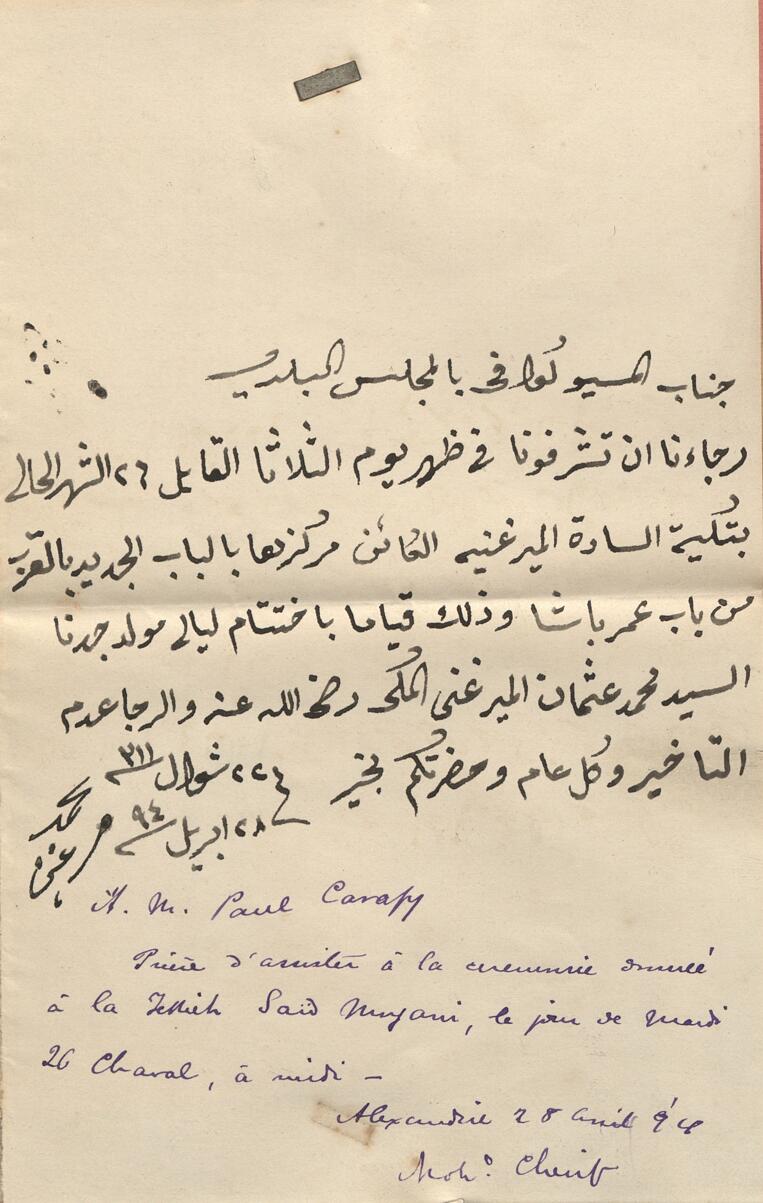 جناب المسيو كوافى بالمجلس البلدى
رجاءنا ان تشرفونا فى ظهر يوم الثلاثا القابل ٢٦ الشهر الحالى
بتكية السادة الميرغنيه الكائن مركزها بالباب الجديد بالقرب
من باب عمر باشا وذلك قياما باختتام ليالى مولد جدنا
السيد محمد عثمان الميرغنى المكى رضى الله عنه والرجا عدم
التاخير وكل عام وحضرتكم بخير
٢٢ شوال ٣١١
٢٨ ابريل ٩٤
محمد
ميرغنى
A. M. Paul Cavafy
Prière d'assister à la ceremonie donnée
à la Tekieh Said Mirgani, le jour de Mardi
26 Chaval, à midi –
Alexandrie 28 avril 94
Moh.º Cherif